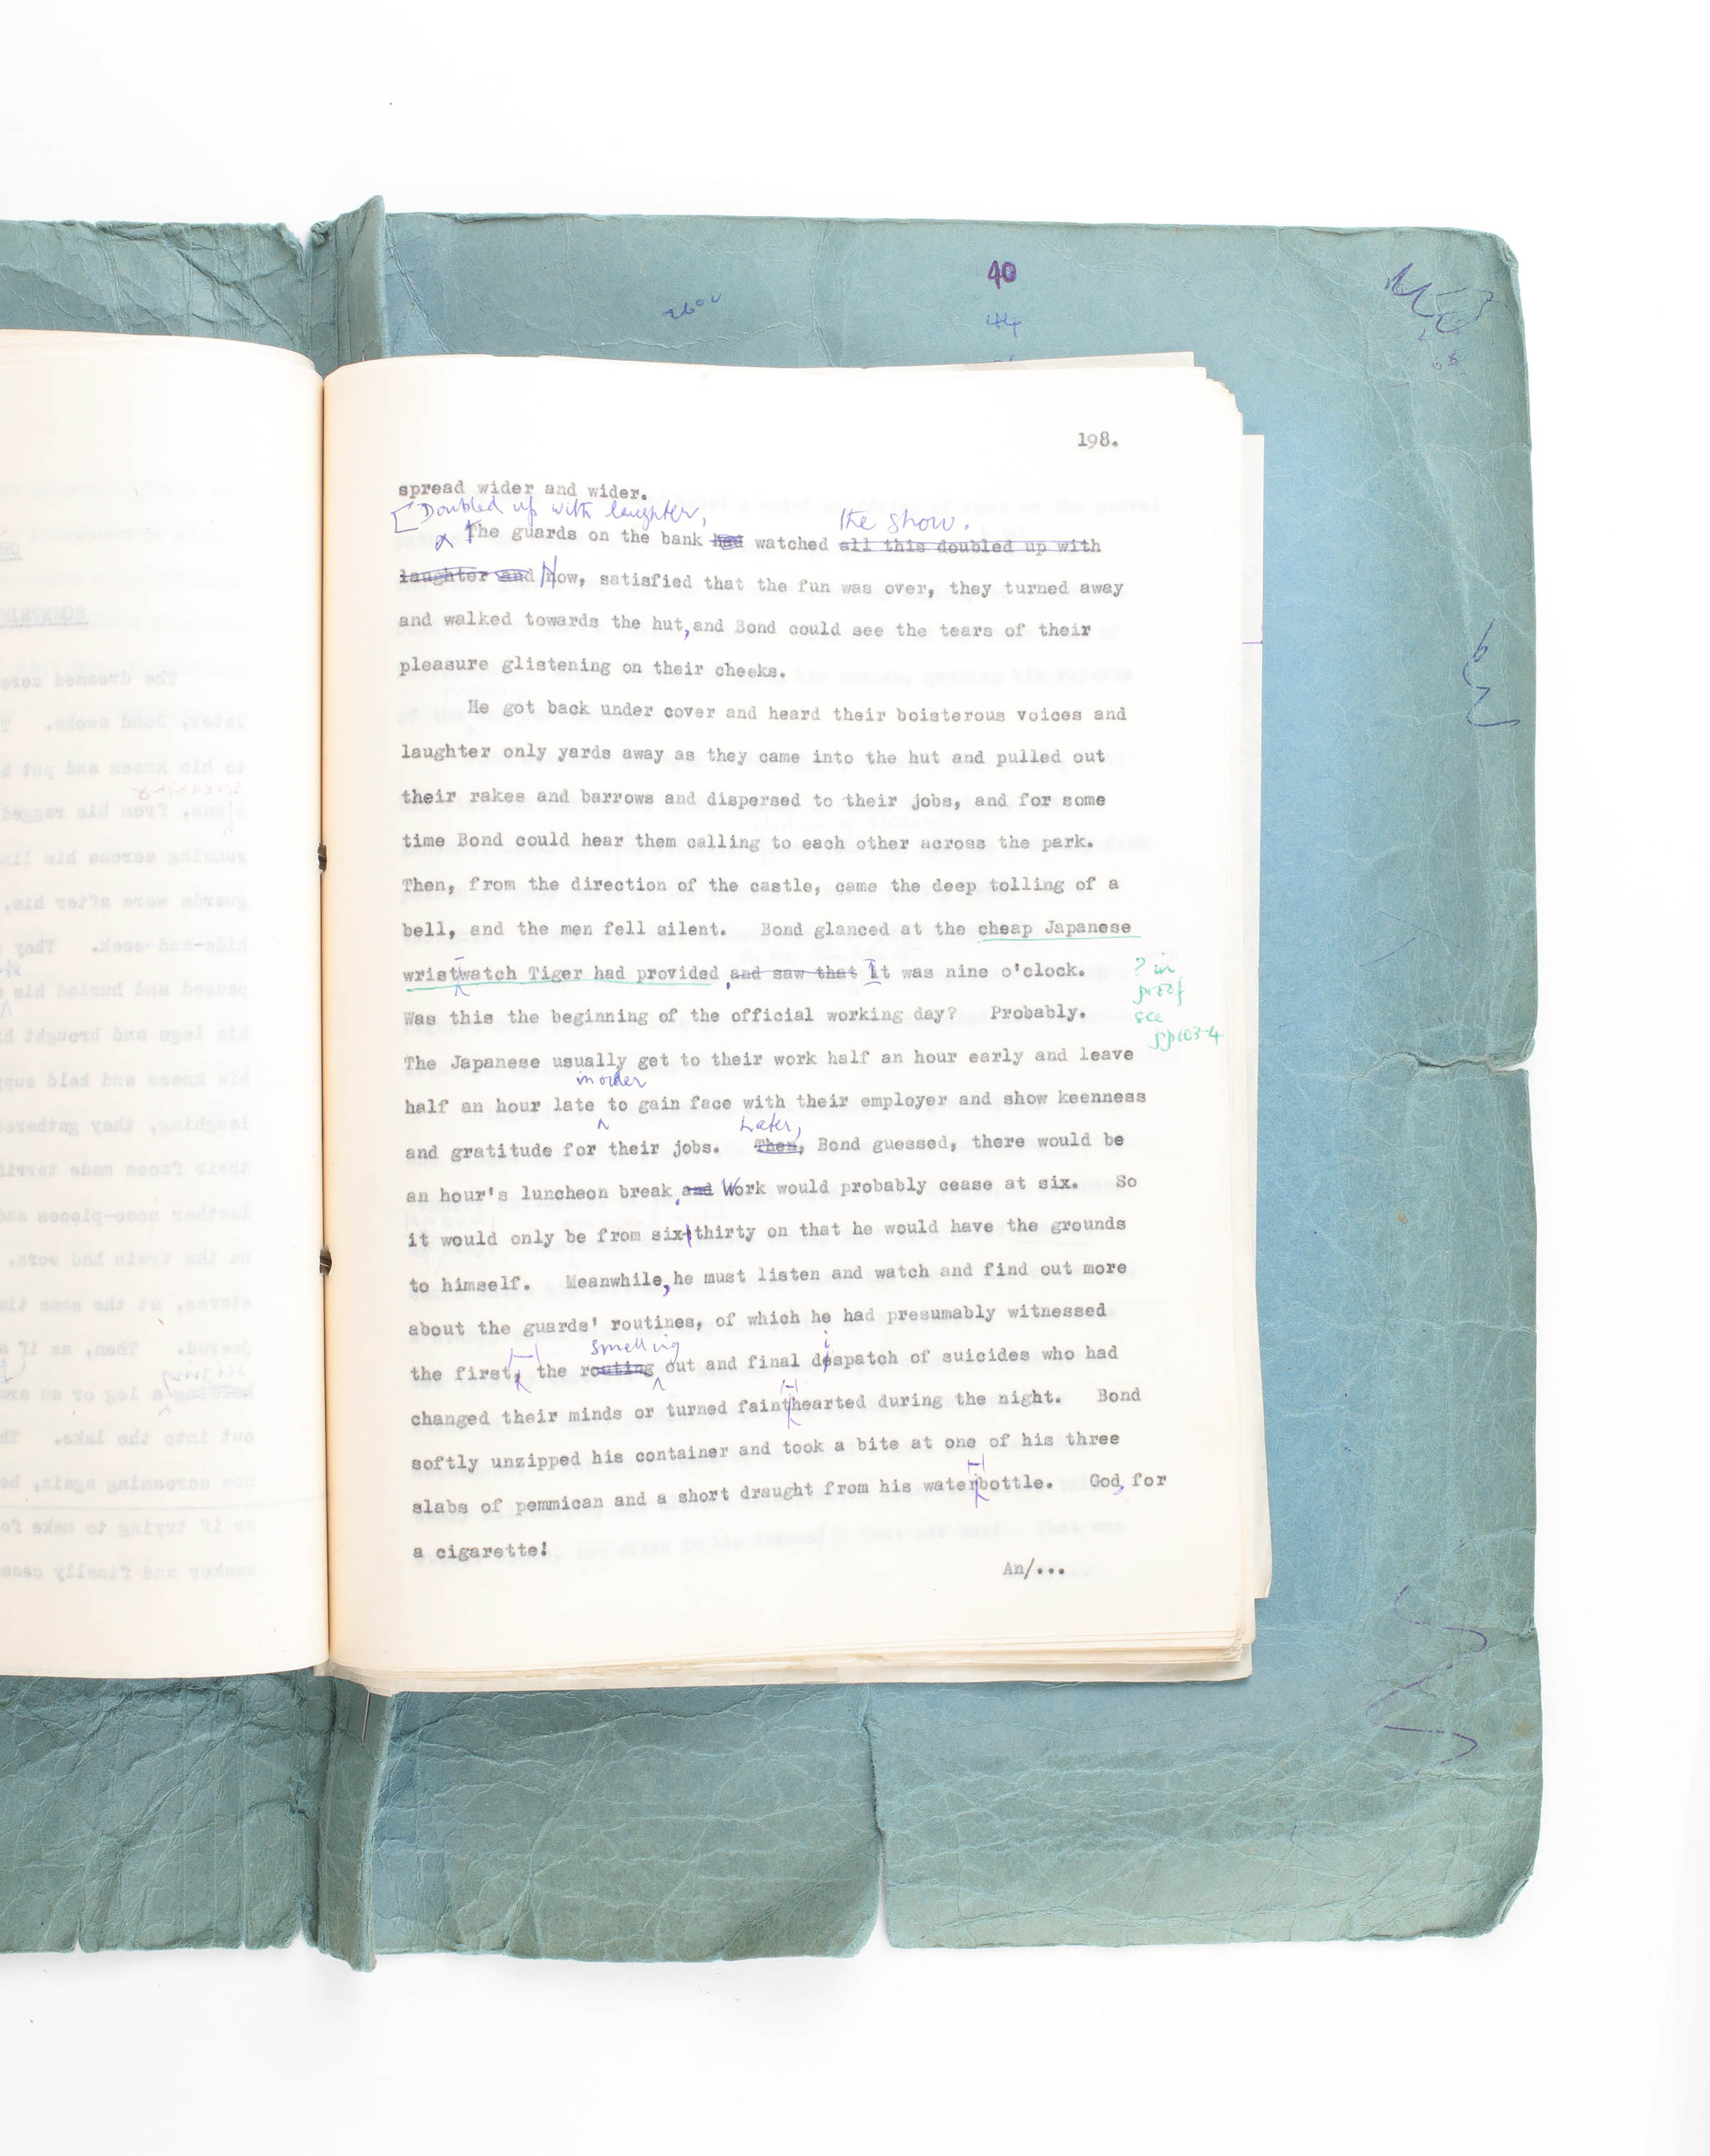 40
44
198.
spread wider and wider.
[Doubled up with laughter,
the show.
The guards on the bank had watched all this doubled up with
laughter and Now, satisfied that the fun was over, they turned away
and walked towards the hut, and Bond could see the tears of their
pleasure glistening on their cheeks.
He got back under cover and heard their boisterous voices and
laughter only yards away as they came into the hut and pulled out
their rakes and barrows and dispersed to their jobs, and for some
time Bond could hear them calling to each other across the park.
Then, from the direction of the castle, came the deep tolling of a
bell, and the men fell silent. Bond glanced at the cheap Japanese
wrist-watch Tiger had provided, and saw that It was nine o'clock.
? in
proof
see
pp 103-4
Was this the beginning of the official working day? Probably.
The Japanese usually get to their work half an hour early and leave
in order
half an hour late to gain face with their employer and show keenness
Later,
and gratitude for their jobs. Then, Bond guessed, there would be
an hour's luncheon break. and Work would probably cease at six. So
it would only be from six-thirty on that he would have the grounds
to himself. Meanwhile, he must listen and watch and find out more
about the guards' routines, of which he had presumably witnessed
smelling
i
the first, the routing out and final despatch of suicides who had
changed their minds or turned faint-hearted during the night. Bond
softly unzipped his container and took a bite at one of his three
slabs of pemmican and a short draught from his water-bottle. God, for
a cigarette!
An/...